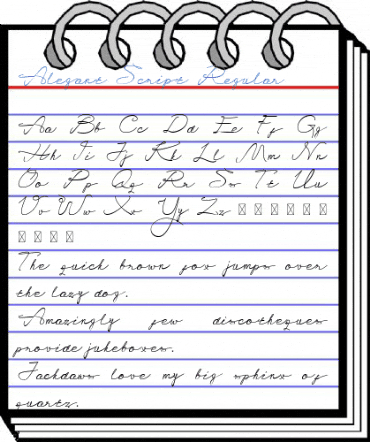 Alegant Script Regular
Aa Bb Cc Dd Ee Ff Gg
Hh Ii Jj Kk Ll Mm Nn
Oo Pp Qq Rr Ss Tt Uu
Vv Ww Xx Yy Zz
The quick brown fox jumps over
the lazy dog.
Amazingly few discotheques
provide jukeboxes.
Jackdaws love my big sphinx of
quartz.